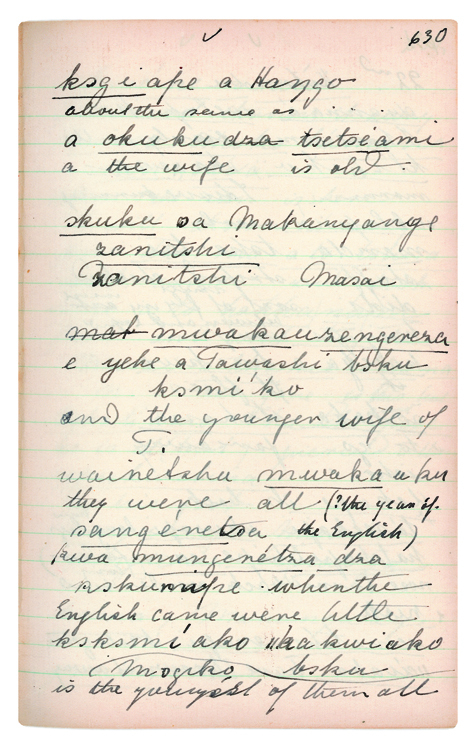 630
ksgi ape a Hango
about the same as . . . .
a okukudza tsetséami
a the wife is old.
skuku oa Makanyange
zanitshi
zanitshi Masai
mak mwakauzengereza
e yehe a Tawashi bsku
ksmi'ko
and the younger wife of
T.
wainetsha mwaka u ku
they were all (? the year of
sangeretsa the English)
kwa mungerétza dza
when the
English came were little
ksksmi'ako kakwiako
Mogiko bska
is the youngest of them all